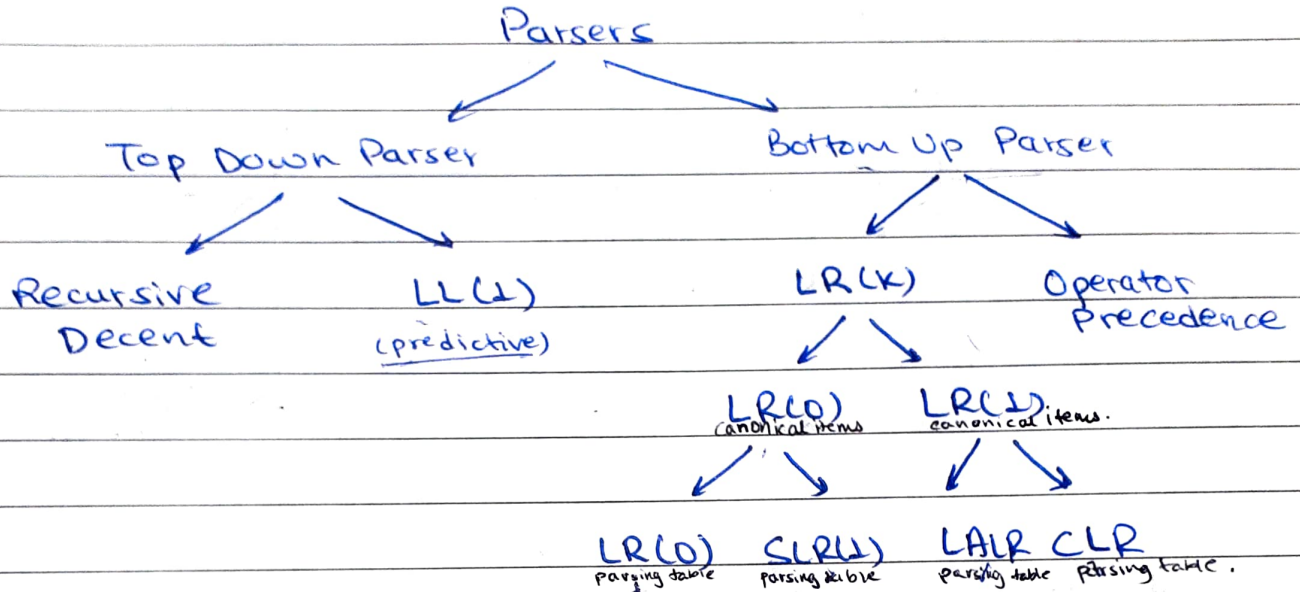 Parsers
Top Down Parser
Bottom Up Parser
Recursive
Decent
LL(1)
(predictive)
LR(K)
Operator
Precedence
LR(0)
canonical items
LR(1)
canonical items.
LR(0)
parsing table
SLR(1)
parsing table
LALR
parsing table
CLR
parsing table.